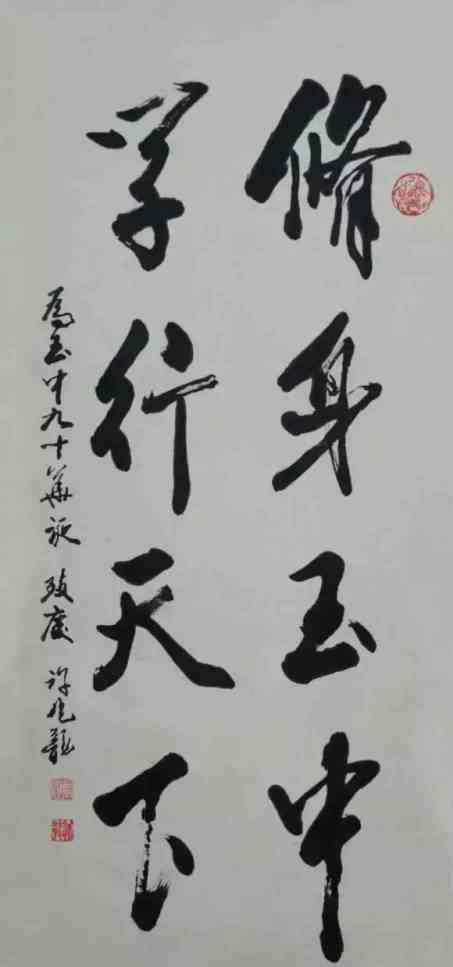 修身玉中
学行天下
为玉中九十华诞 致庆 许龙